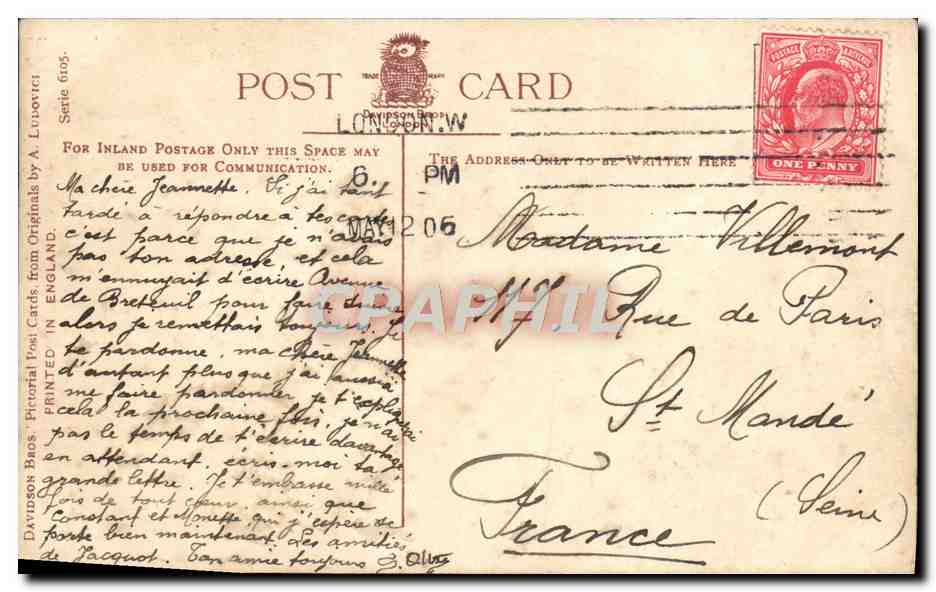 POST CARD
TRADE MARK
DAVIDSON BROS
LONDON
LONDON.W
6. PM
MAY 12 06
POSTAGE REVENUE
ONE PENNY
FOR INLAND POSTAGE ONLY THIS SPACE MAY
BE USED FOR COMMUNICATION.
THE ADDRESS ONLY TO BE WRITTEN HERE
DAVIDSON BROS.' Pictorial Post Cards, from Originals by A. LUDOVICI
Serie 6105.
PRINTED IN ENGLAND.
Ma chère Jeannette. Si j'ai tant
tardé à répondre à tes cartes
c'est parce que je n'avais
pas ton adresse et cela
m'ennuyait d'écrire Avenue
de Breteuil pour faire suivre
alors je remettais toujours.
te pardonne, ma chère Jeannette
d'autant plus que j'ai aussi à
me faire pardonner je t'expliquerai
cela la prochaine fois, je n'ai
pas le temps de t'écrire davantage
en attendant, écris-moi ta
grande lettre. Je t'embrasse mille
fois de tout cœur ainsi que
Constant et Monette qui j'espère se
porte bien maintenant. Les amitiés
de Jacquot. Ton amie toujours
Madame Villemont
Rue de Paris
St Mandé
(Seine)
France
CPAPHIL